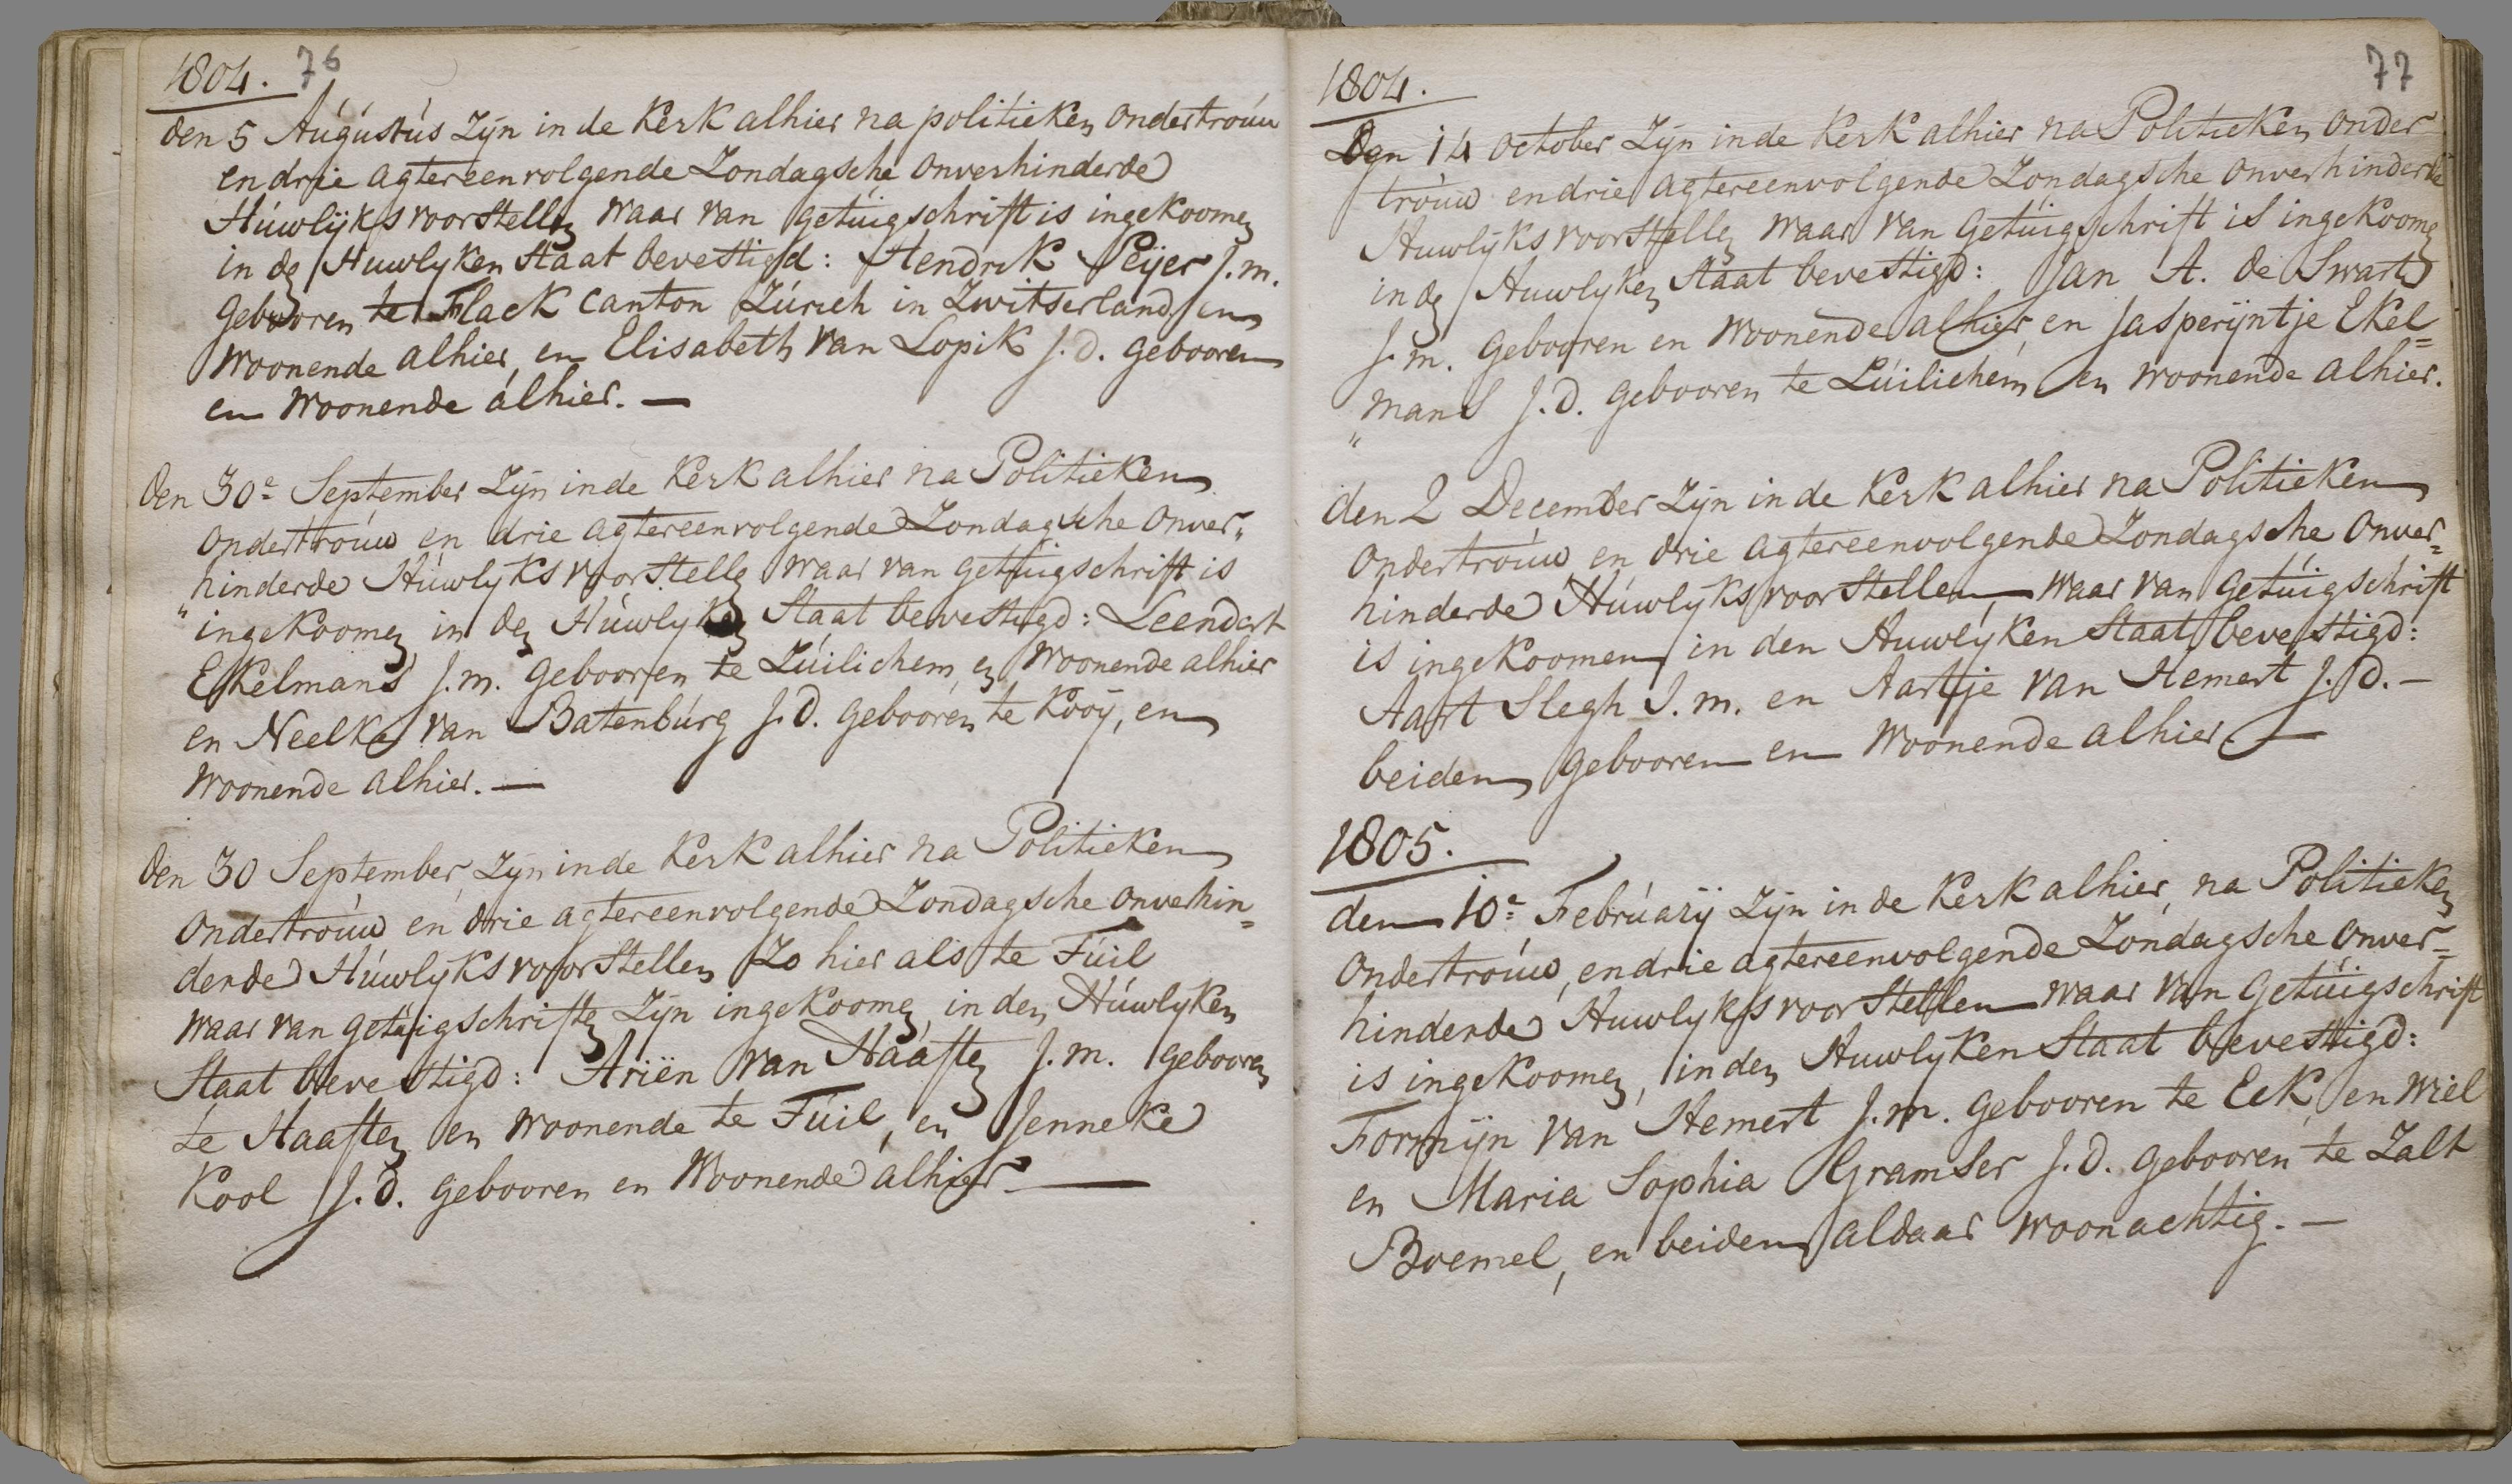 1804. 76
den 5 Augustus Zyn in de Kerk alhier na politieken ondertrouw
en drie agtereenvolgende Zondagsche onverhinderde
Huwlijks voorstellen waar van getuigschrift is ingekoomen
in den Huwlyken Staat bevestigd: Hendrik Peijer J.m.
gebooren te Flack Canton Zurich in Zwitserland en
woonende alhier, en Elisabeth van Lopik J.d. gebooren
en woonende alhier. —
den 30e September Zyn in de Kerk alhier na Politieken
ondertrouw en drie agtereenvolgende Zondagsche onver„
„hinderde Huwlyks voorstelle waar van getuigschrift is
ingekoomen in den Huwlyken Staat bevestigd: Leendert
Ekelmans J.m. gebooren te Zuilichem, en woonende alhier
en Neelke van Batenburg J.d. gebooren te Kooy, en
woonende alhier. —
den 30 September, Zyn in de Kerk alhier na Politieken
ondertrouw en drie agtereenvolgende Zondagsche onverhin=
derde Huwlyks voorstellen Zo hier als te Tuil
waar van getuigschriften Zyn ingekoomen, in den Huwlyken
Staat bevestigd: Ariën van Haaften J.m. gebooren
te Haaften en woonende te Tuil, en Jenneke
Kool J.d. gebooren en woonende alhier —
77
1804.
Den 14 october Zyn in de Kerk alhier na Politieken onder
trouw en drie agtereenvolgende Zondagsche onverhinderde
Huwlyks voorstellen waar van getuigschrift is ingekoomen
in den Huwlyken Staat bevestigd: Jan A. de Swart
J.m. gebooren en woonende alhier, en Jasperijntje Ekel=
„mans J.d. gebooren te Zuilichem en woonende alhier.
den 2 December Zyn in de Kerk alhier na Politieken
ondertrouw en drie agtereenvolgende Zondagsche onver=
hinderde Huwlyks voorstellen, waar van getuigschrift
is ingekoomen in den Huwlyken Staat bevestigd:
Aart Slegh J.m. en Aartje van Hemert J.d. —
beiden gebooren en woonende alhier. —
1805.
den 10e February Zyn in de Kerk alhier, na Politieken
ondertrouw, en drie agtereenvolgende Zondagsche onver=
hinderde Huwlyks voorstellen waar van getuigschrift
is ingekoomen, in den Huwlyken Staat bevestigd:
Formijn van Hemert J.m. gebooren te Eck en wiel
en Maria Sophia Gramser J.d. gebooren te Zalt
Boemel, en beiden aldaar woonachtig. —